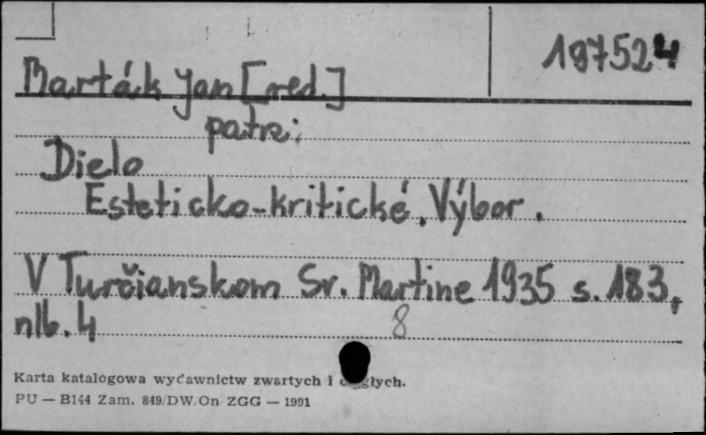 197524
Marták Jan [red.]
patrz:
Dielo
Esteticko-kritické. Výbor.
V Turčianskom Sv. Martine 1935 s. 183,
nlb. 4
8
Karta katalogowa wydawnictw zwartych i ciągłych.
PU — B144 Zam. 849/DW/On ZGG — 1991